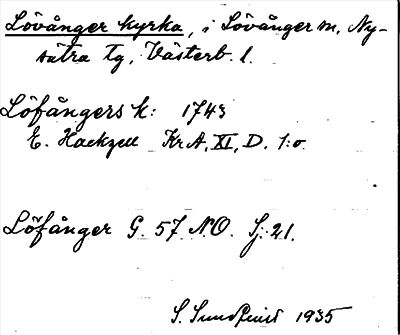 Lövånger kyrka, i Lövånger sn, Ny-
sätra tg, Västerb. l.
Löfångers k: 1743
E. Hackzell KrA, XI, D. 1:o
Löfånger G. 57 NO. Sj: 21.
S. Sundquist 1935